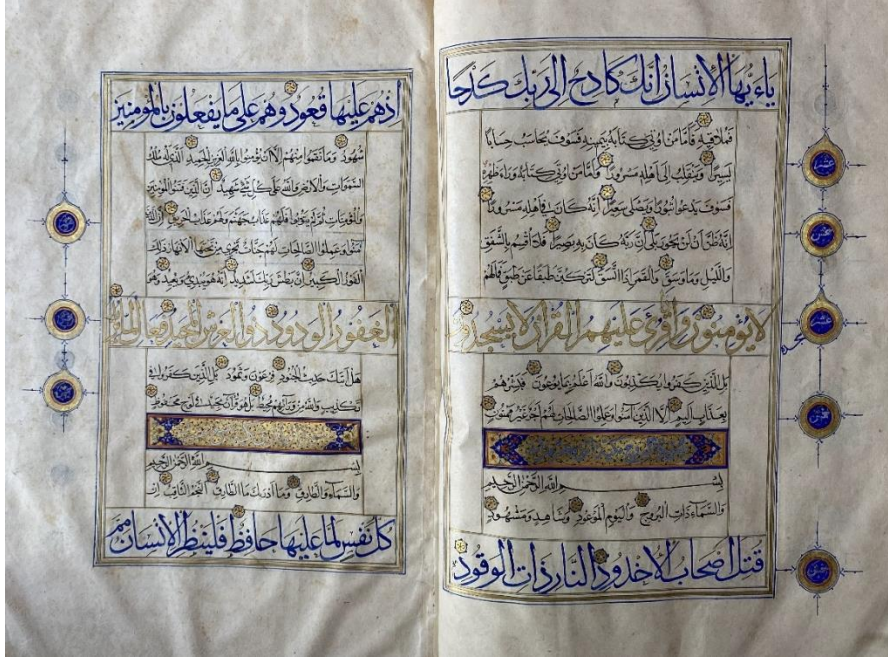 ياءيها الإنسان إنك كادح إلى ربك كدحا
فملاقيه فأما من أوتي كتابه بيمينه فسوف يحاسب حسابا
يسيرا وينقلب إلى أهله مسرورا وأما من أوتي كتابه وراء ظهره
فسوف يدعوا ثبورا ويصلى سعيرا إنه كان في أهله مسرورا
إنه ظن أن لن يحور بلى إن ربه كان به بصيرا فلا أقسم بالشفق
والليل وما وسق والقمر إذا اتسق لتركبن طبقا عن طبق فما لهم
لا يؤمنون وإذا قرئ عليهم القرآن لا يسجدون
بل الذين كفروا يكذبون والله أعلم بما يوعون فبشرهم
بعذاب أليم إلا الذين آمنوا وعملوا الصالحات لهم أجر غير ممنون
بسم الله الرحمن الرحيم
والسماء ذات البروج واليوم الموعود وشاهد ومشهود
قتل أصحاب الأخدود النار ذات الوقود
إذ هم عليها قعود وهم على ما يفعلون بالمؤمنين
شهود وما نقموا منهم إلا أن يؤمنوا بالله العزيز الحميد الذي له ملك
السموات والأرض والله على كل شيء شهيد إن الذين فتنوا المؤمنين
والمؤمنات ثم لم يتوبوا فلهم عذاب جهنم ولهم عذاب الحريق إن الذين
آمنوا وعملوا الصالحات لهم جنات تجري من تحتها الأنهار ذلك
الفوز الكبير إن بطش ربك لشديد إنه هو يبدئ ويعيد وهو
الغفور الودود ذو العرش المجيد فعال لما يريد
هل أتاك حديث الجنود فرعون وثمود بل الذين كفروا في
تكذيب والله من ورائهم محيط بل هو قرآن مجيد في لوح محفوظ
بسم الله الرحمن الرحيم
والسماء والطارق وما أدراك ما الطارق النجم الثاقب إن
كل نفس لما عليها حافظ فلينظر الإنسان مم